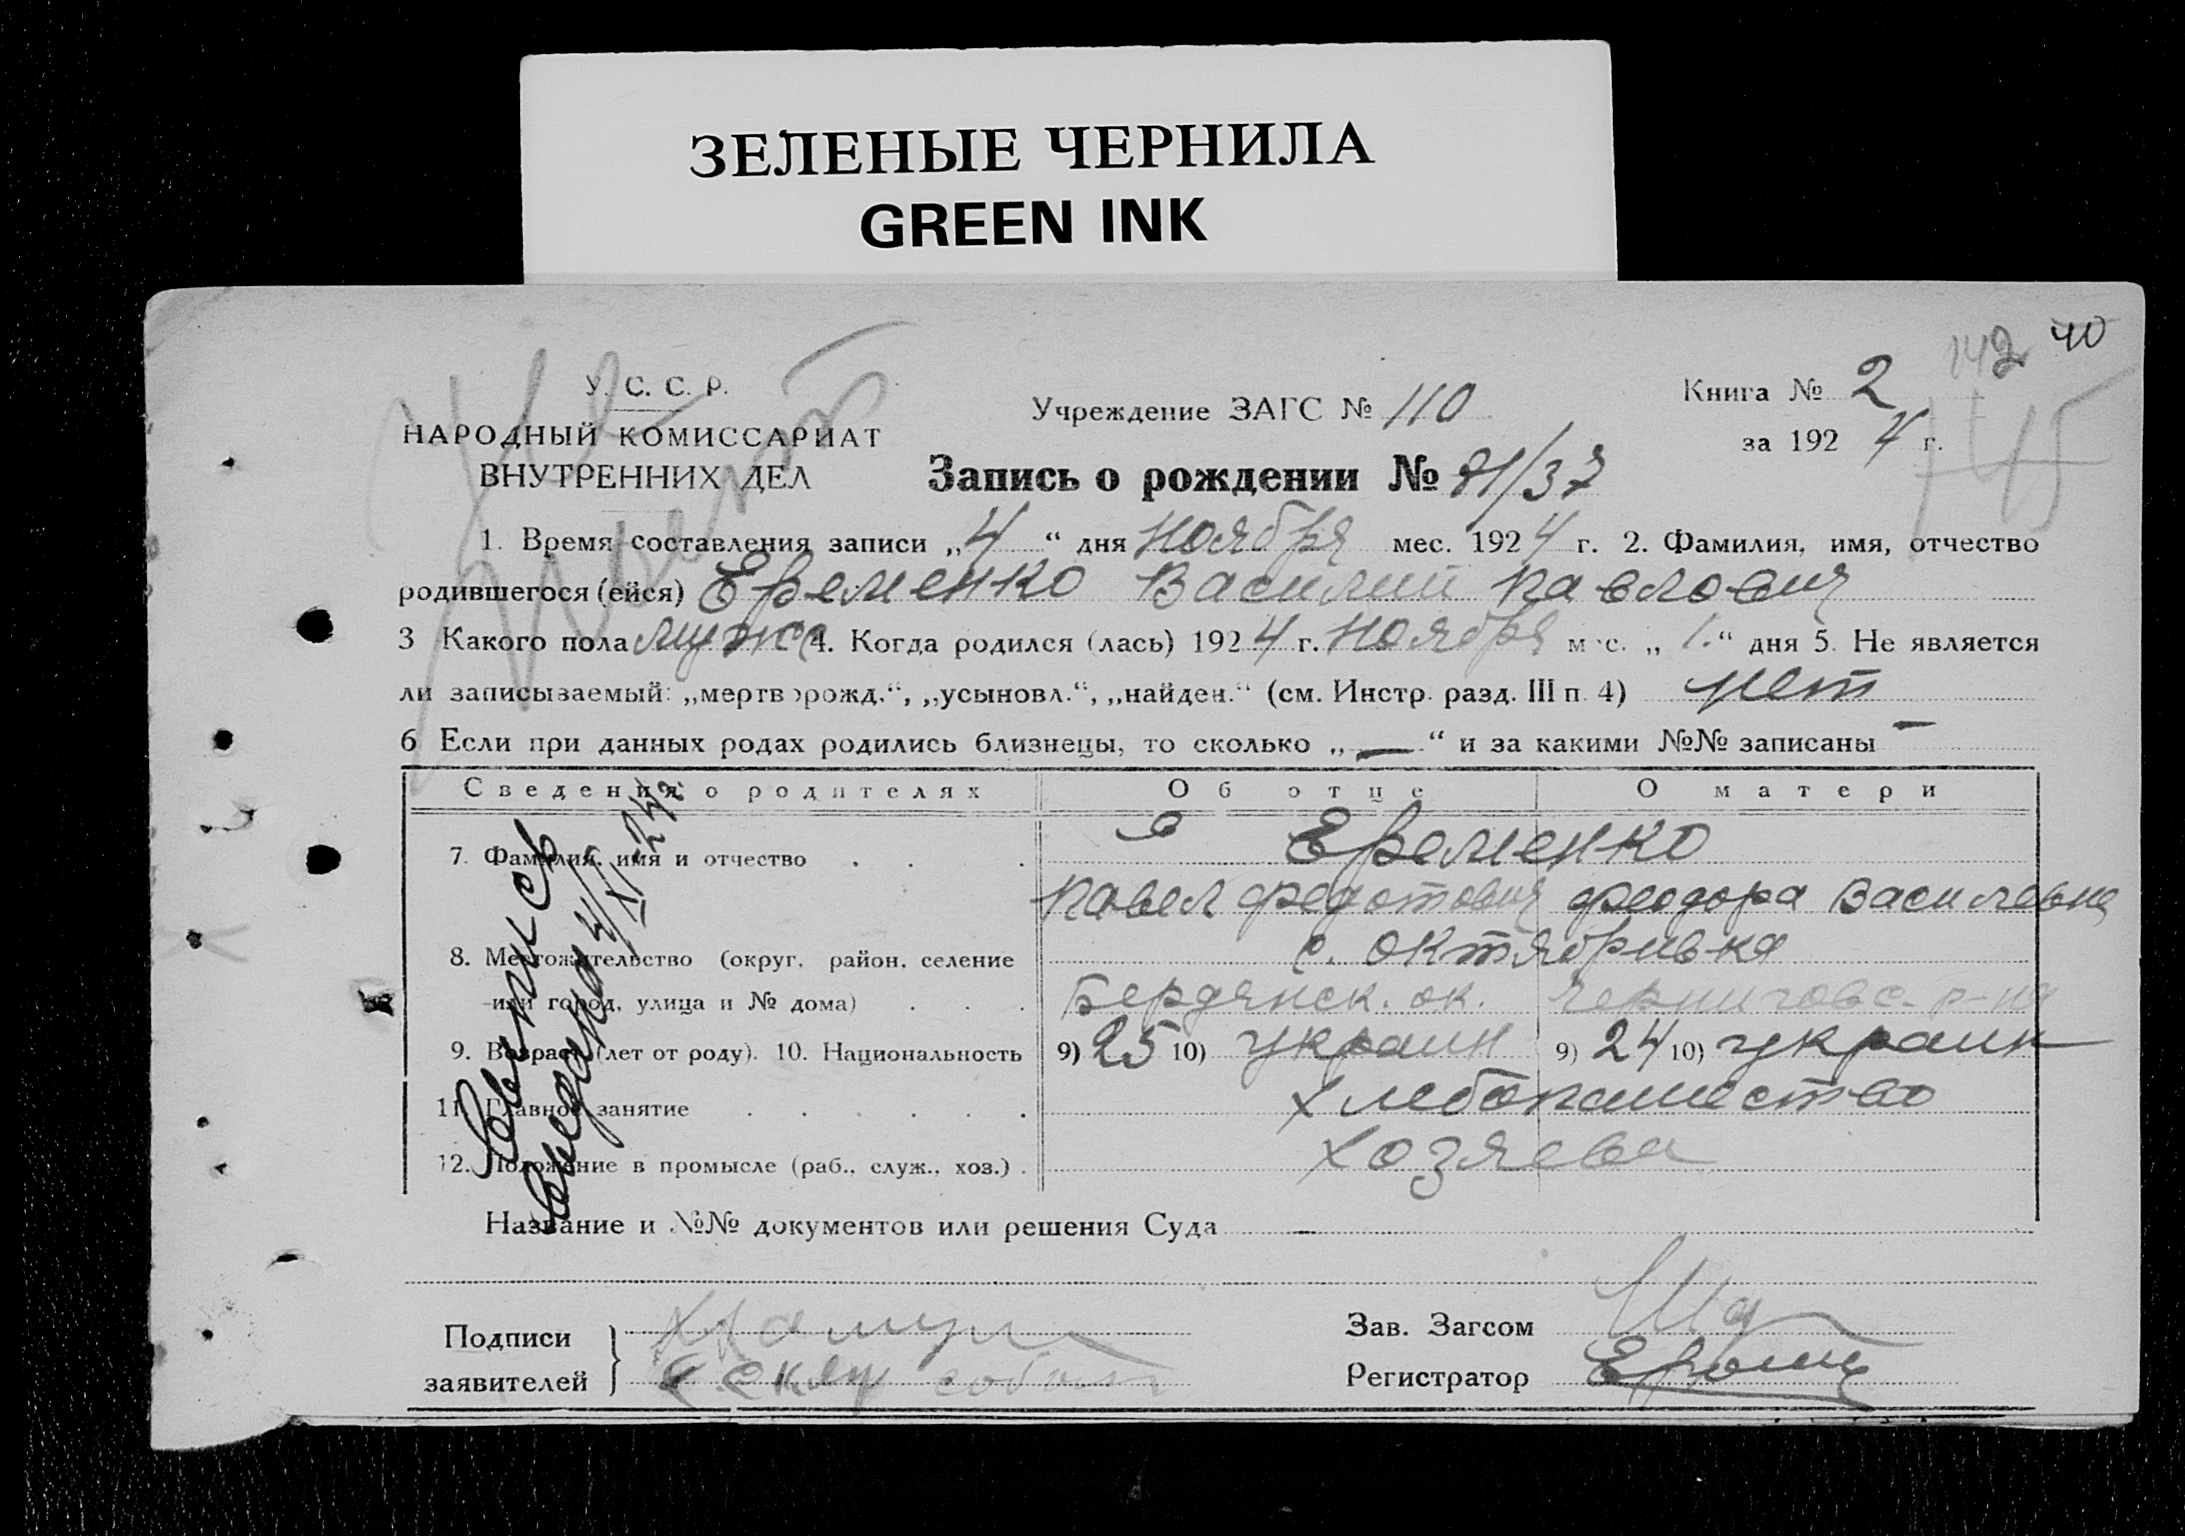 ЗЕЛЕНЫЕ ЧЕРНИЛА
GREEN INK
142 40
145
У. С. С. Р.
НАРОДНЫЙ КОМИССАРИАТ
ВНУТРЕННИХ ДЕЛ
Учреждение ЗАГС № 110
Книга № 2
за 1924 г.
Запись о рождении № 71/37
1. Время составления записи „4“ дня Ноября мес. 1924 г. 2. Фамилия, имя, отчество
родившегося (ейся) Еременко Василий Павлович
3 Какого пола мужс 4. Когда родился (лась) 1924 г. Ноября мес. „1.“ дня 5. Не является
ли записываемый: „мертворожд.“, „усыновл.“, „найден.“ (см. Инстр. разд. III п 4) нет
6 Если при данных родах родились близнецы, то сколько „—“ и за какими №№ записаны —
Сведения о родителях Об отце О матери
7. Фамилия, имя и отчество . . . Еременко
Павел Федотович Феодора Василевна
8. Местожительство (округ, район, селение с. Октябривка
или город, улица и № дома) . . . Бердянск. ок. Черниговс. р-на
9. Возраст (лет от роду). 10. Национальность 9) 25 10) украин 9) 24 10) украин
11. Главное занятие . . . . . . Хлебопашество
12. Положение в промысле (раб., служ., хоз.) . Хозяева
4/XI-24 г.
Название и №№ документов или решения Суда —
Подписи
заявителей
Зав. Загсом
Регистратор